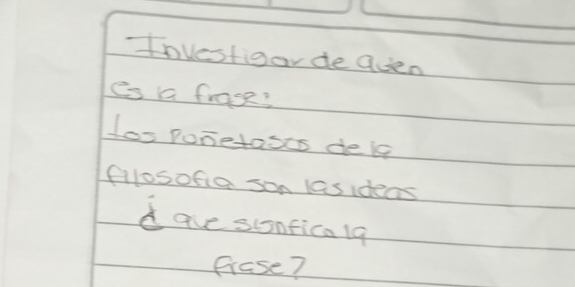 Investigar de quen
es la frase:
los Poñetasos de la
filosofia son las ideas
¿ que sisnfica la
frase?